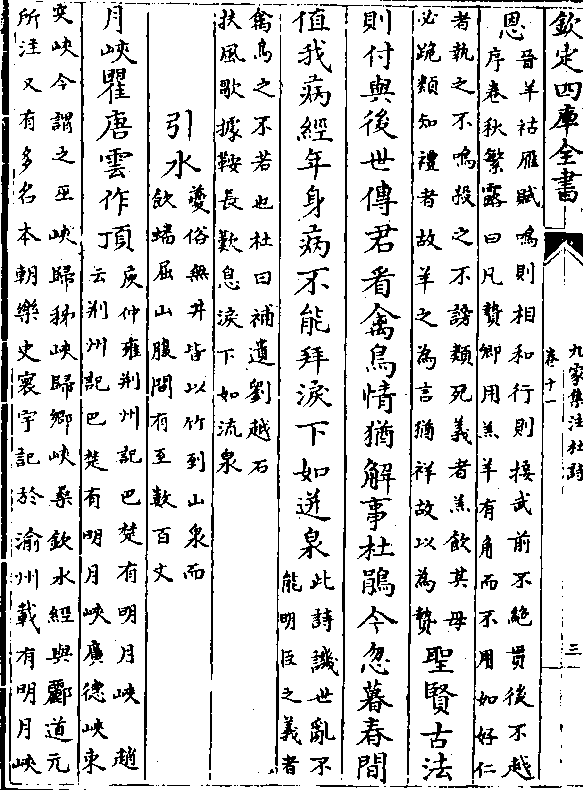 欽定四庫全書
九家集注杜詩
卷十一
三
恩
晉羊祜雁賦鳴則相和行則接武前不絶貫後不越
序春秋繁露曰凡贄卿用羔羊有角而不用如好仁
者執之不鳴殺之不謗類死義者羔飲其母
必跪類知禮者故羊之為言猶祥故以為贄
聖賢古法
則付與後世傳君看禽鳥情猶解事杜鵑今忽暮春間
值我病經年身病不能拜淚下如迸泉
此詩譏世亂不
能明臣之義者
禽鳥之不若也杜曰補遺劉越石
扶風歌據鞍長歎息淚下如流泉
引水
夔俗無井皆以竹引山泉而
飲蟠屈山腹間有至數百丈
月峽瞿唐雲作頂
庾仲雍荆州記巴楚有明月峽趙
云荆州記巴楚有明月峽廣徳峽東
突峽今謂之巫峽歸秭峽歸鄉峽桑欽水經與酈道元
所注又有多名本朝樂史寰宇記於渝州載有明月峽